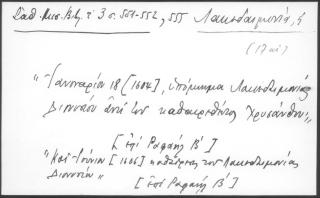 Σαθ. Μεσ. Βιβ. τ 3 σ. 551-552, 555 Λακεδαιμονία, ἡ
(17 αἰ)
"Ἰανουαρίου 18 [1604], ὑπόμνημα Λακεδαιμονίας
Διονυσίου ἀντί τοῦ καθαιρεθέντος Χρυσάνθου"
[ἐπί Ραφαήλ Β']
"Κατ' Ἰούνιον [1606] καθαίρεσις τοῦ Λακεδαιμονίας
Διονυσίου" [ἐπί Ραφαήλ Β']